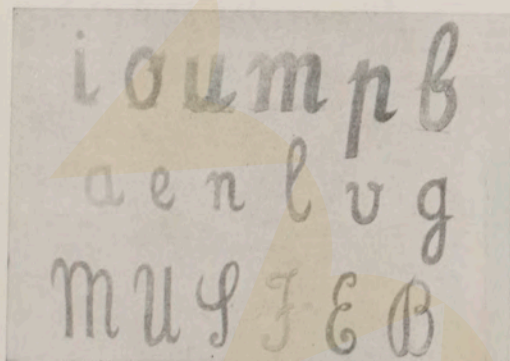 i o u m p b
a e n l v g
M U S T E B